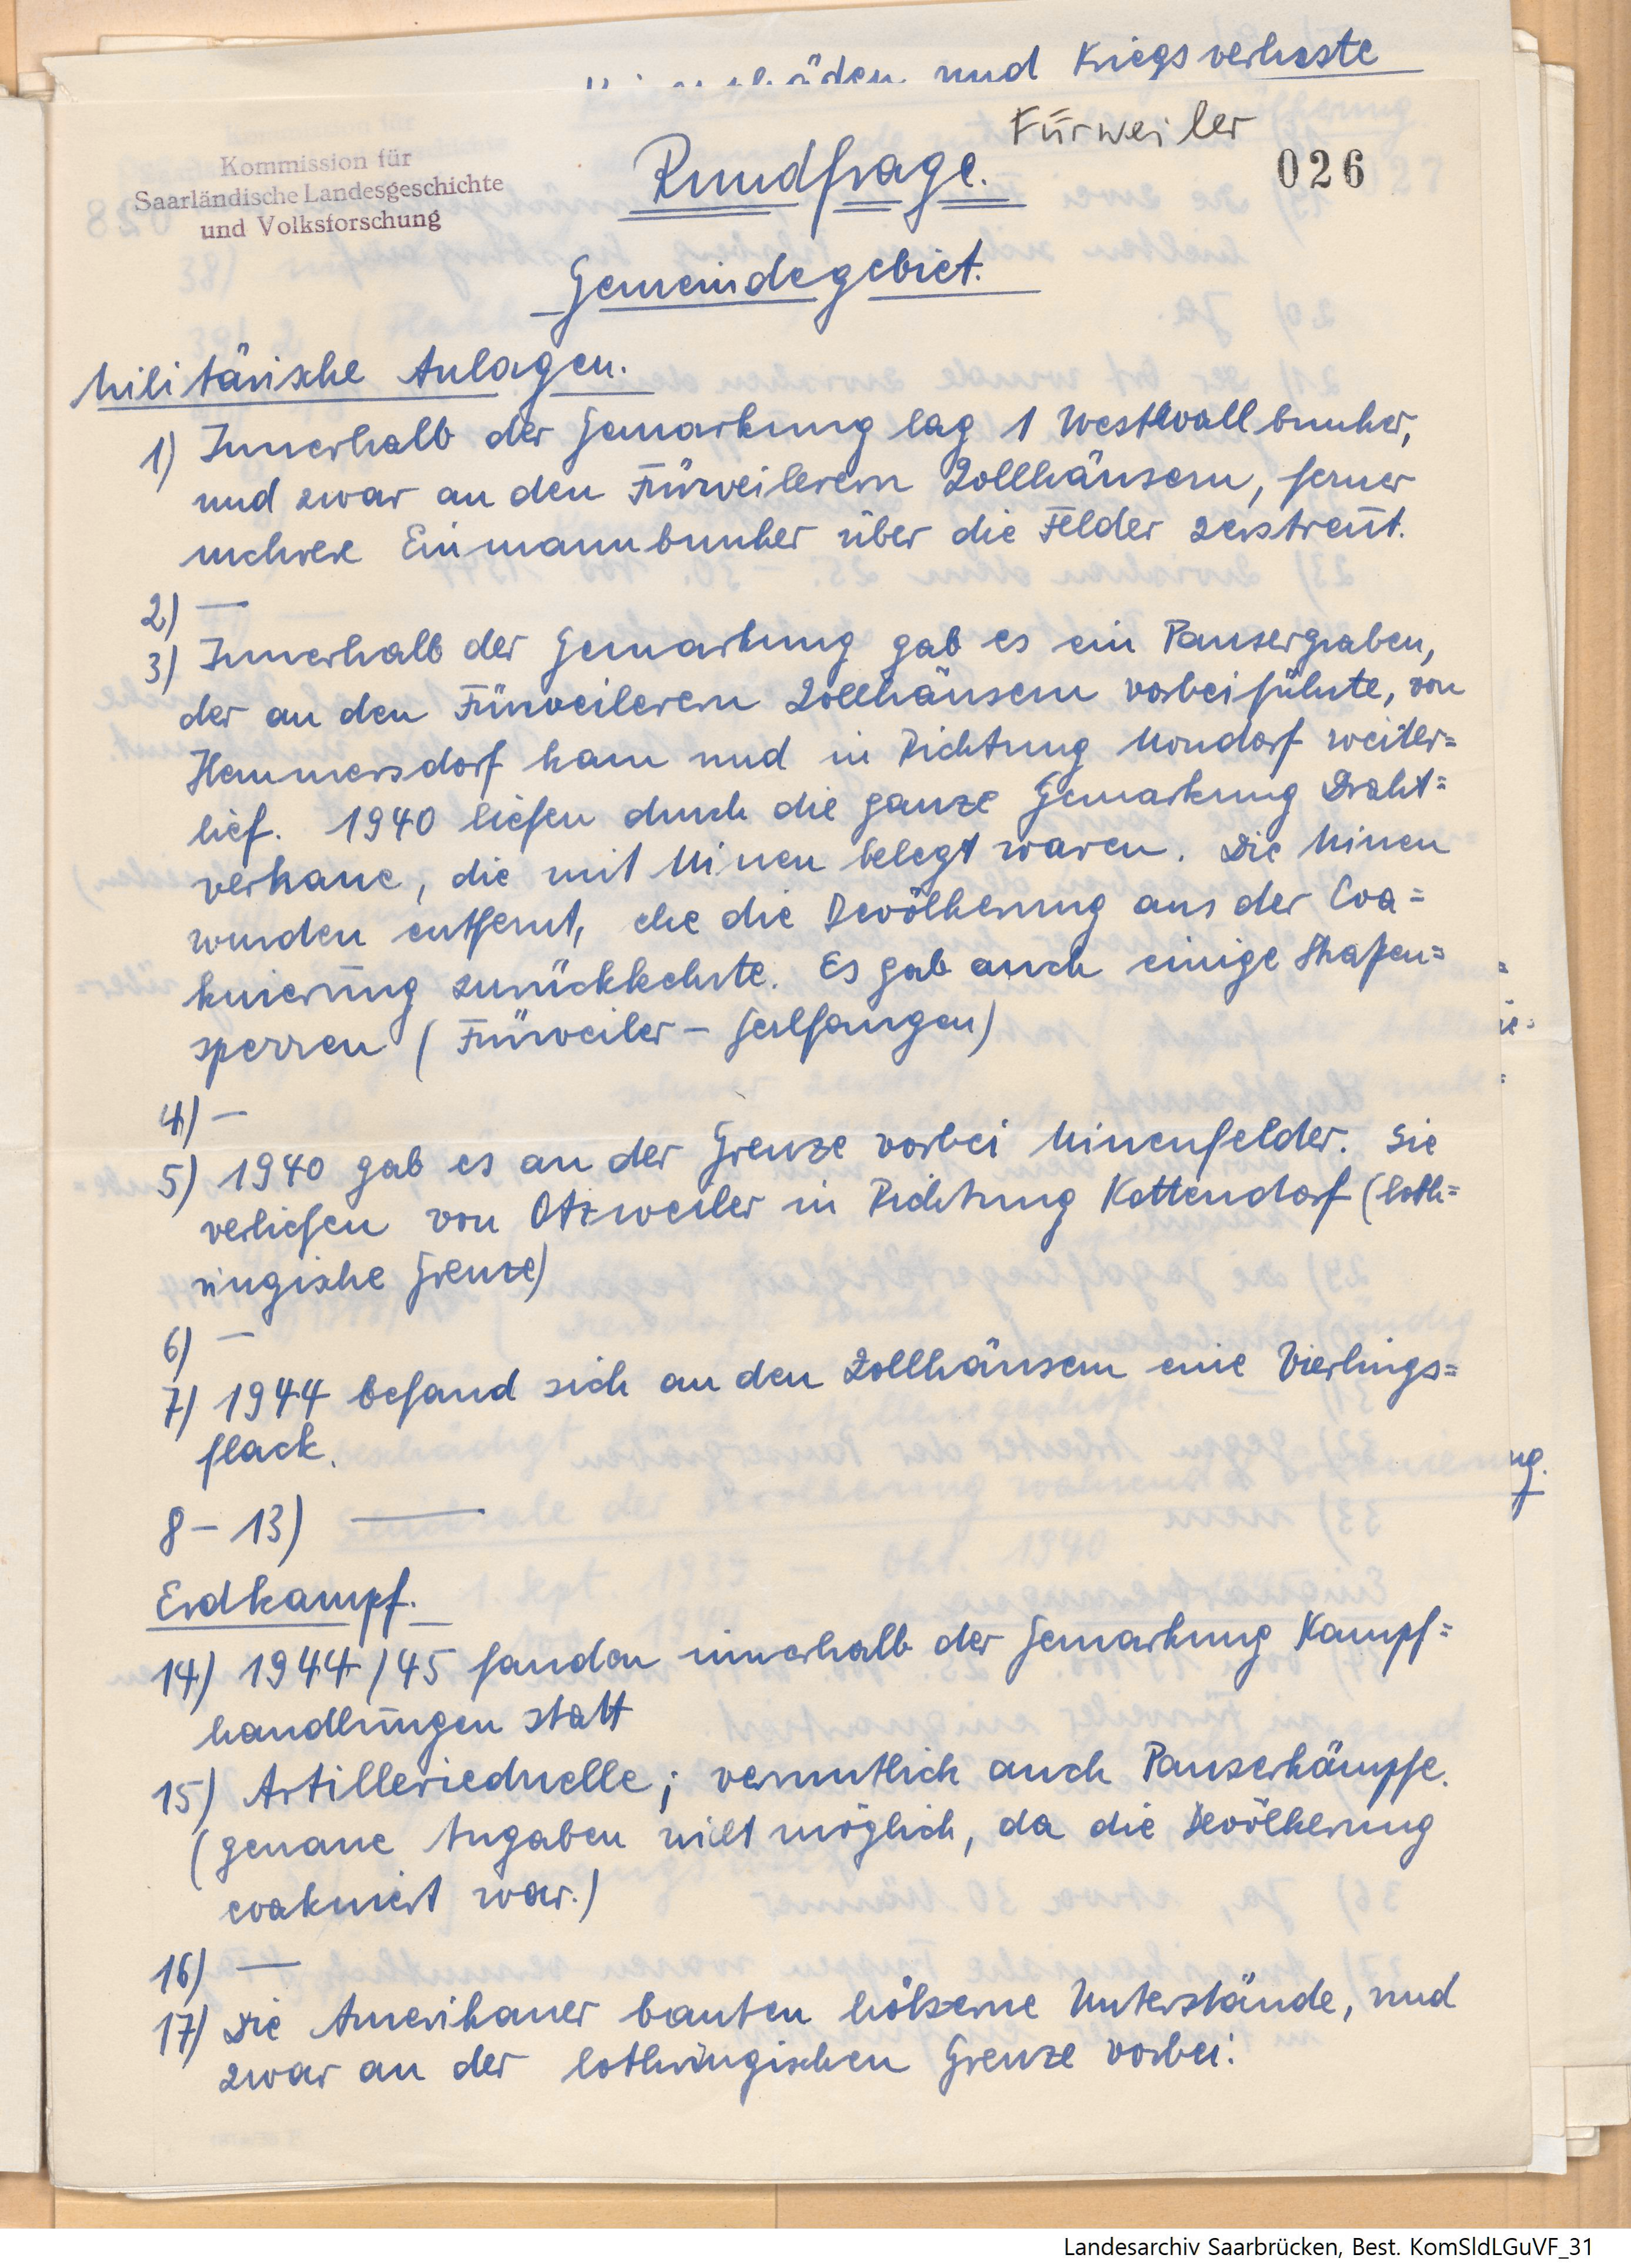 und Kriegsverluste
Fürweiler
Kommission für
Saarländische Landesgeschichte
und Volksforschung
Rundfrage.
026
Gemeindegebiet.
Militärische Anlagen.
1) Innerhalb der Gemarkung lag 1 Westwallbunker,
und zwar an den Fürweilerern Zollhäusern, ferner
mehrere Einmannbunker über die Felder zerstreut.
2) —
3) Innerhalb der Gemarkung gab es ein Panzergraben,
der an den Fürweilerern Zollhäusern vorbeiführte, von
Hemmersdorf kam und in Richtung Mondorf weiter=
lief. 1940 liefen durch die ganze Gemarkung Draht=
verhaue, die mit Minen belegt waren. Die Minen
wurden entfernt, ehe die Bevölkerung aus der Eva=
kuierung zurückkehrte. Es gab auch einige Straßen=
sperren (Fürweiler – Gerlfangen)
4) —
5) 1940 gab es an der Grenze vorbei Minenfelder. Sie
verliefen von Otzweiler in Richtung Kottendorf (loth=
ringische Grenze)
6) —
7) 1944 befand sich an den Zollhäusern eine Vierlings=
flack.
8 – 13) —
Erdkampf.
14) 1944/45 fanden innerhalb der Gemarkung Kampf=
handlungen statt
15) Artillerieduelle; vermutlich auch Panzerkämpfe.
(genaue Angaben nicht möglich, da die Bevölkerung
evakuiert war.)
16) —
17) Die Amerikaner bauten hölzerne Unterstände, und
zwar an der lothringischen Grenze vorbei.
Landesarchiv Saarbrücken, Best. KomSldLGuVF_31